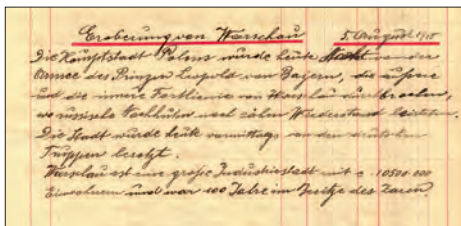 Eroberung von Warschau 5. August 1915
Die Hauptstadt Polens wurde heute Nacht von der
Armee des Prinzen Leopold von Bayern, die äußere
und die innere Fortlinie von Warschau durchbrochen,
wo russische Nachhuten noch zähen Wiederstand leisteten.
Die Stadt wurde heute vormittags von den deutschen
Truppen besetzt.
Warschau ist eine große Industriestadt mit c.
Einwohnern und war 100 Jahre im Besitze des Zaren.